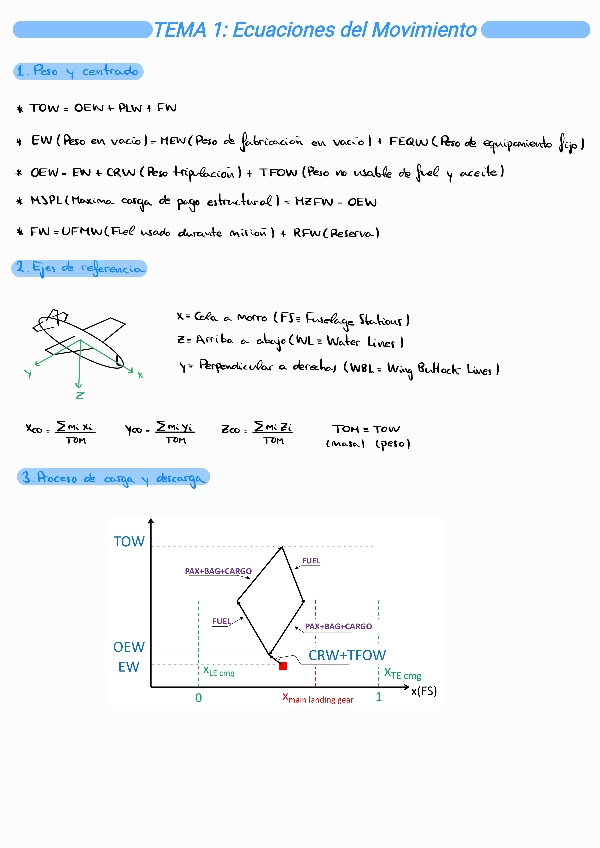 TEMA 1: Ecuaciones del Movimiento
1. Peso y centrado
* TOW = OEW + PLW + FW
* EW (Peso en vacío) = MEW (Peso de fabricación en vacío) + FEQW (Peso de equipamiento fijo)
* OEW = EW + CRW (Peso tripulación) + TFOW (Peso no usable de fuel y aceite)
* MSPL (Maxima carga de pago estructural) = MZFW - OEW
* FW = UFMW (Fuel usado durante misión) + RFW (Reserva)
2. Ejes de referencia
X = Cola a morro (FS ≡ Fuselage Stations)
Z = Arriba a abajo (WL ≡ Water Lines)
Y = Perpendicular a derechas (WBL ≡ Wing Buttock Lines)
Y
X
Z
XCG = Σ mi xi / TOM YCG = Σ mi yi / TOM ZCG = Σ mi zi / TOM TOM ≡ TOW
(masa) (peso)
3. Proceso de carga y descarga
TOW
FUEL
PAX+BAG+CARGO
FUEL
PAX+BAG+CARGO
OEW
CRW+TFOW
EW
xLE cmg
xTE cmg
x(FS)
0
xmain landing gear
1